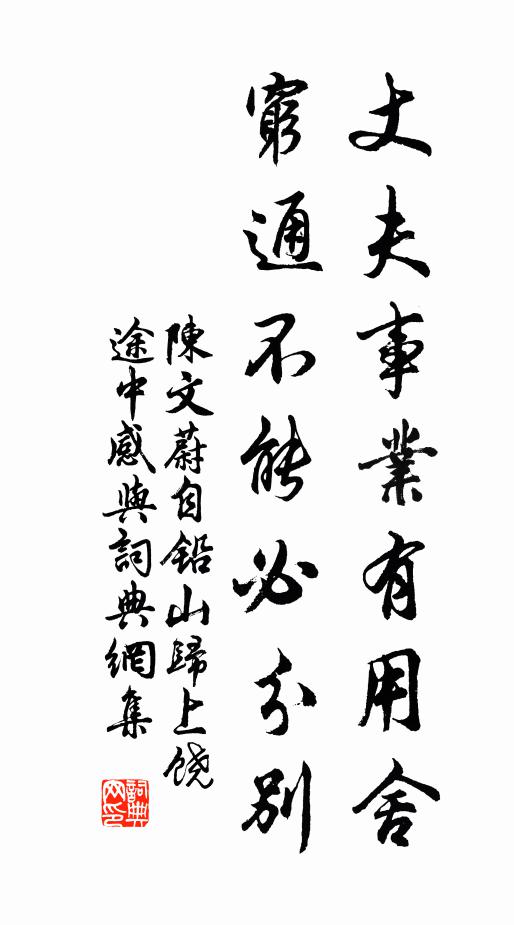 丈夫事業有用舍
窮通不能必分別
陳文蔚自鉛山歸上饶
途中感興詞典網集
詞典網印